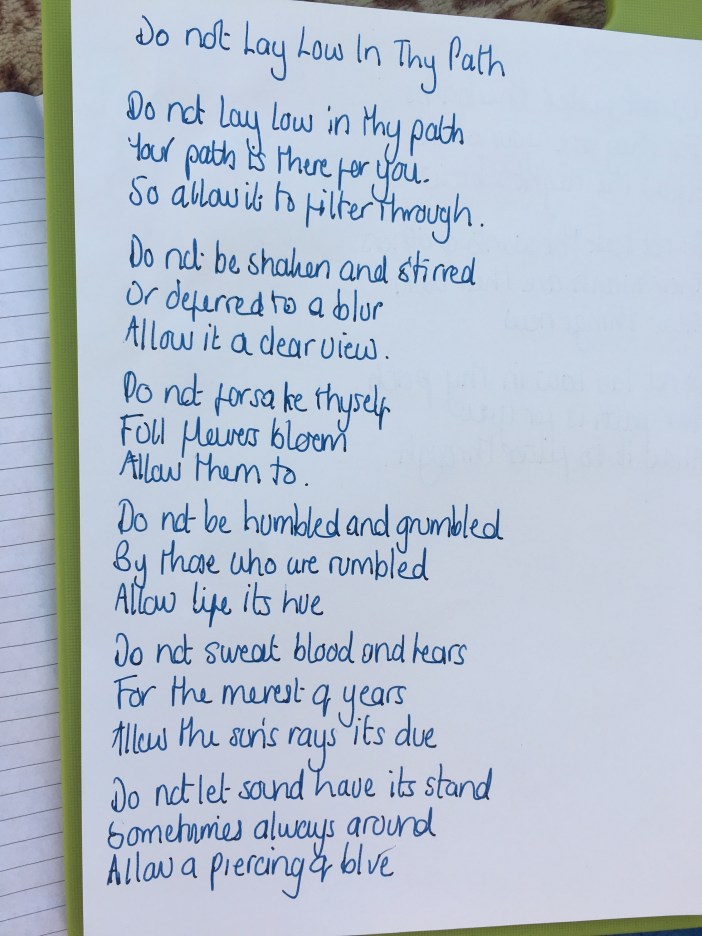 Do not Lay Low In Thy Path
Do not lay low in thy path
Your path is there for you.
So allow it to filter through.
Do not be shaken and stirred
Or deferred to a blur
Allow it a clear view.
Do not forsake thyself
Foll flowers bloom
Allow them to.
Do not be humbled and grumbled
By those who are rumbled
Allow life its hue
Do not sweat blood and tears
For the merest of years
Allow the sun's rays its due
Do not let sound have its stand
Sometimes always around
Allow a piercing of blue